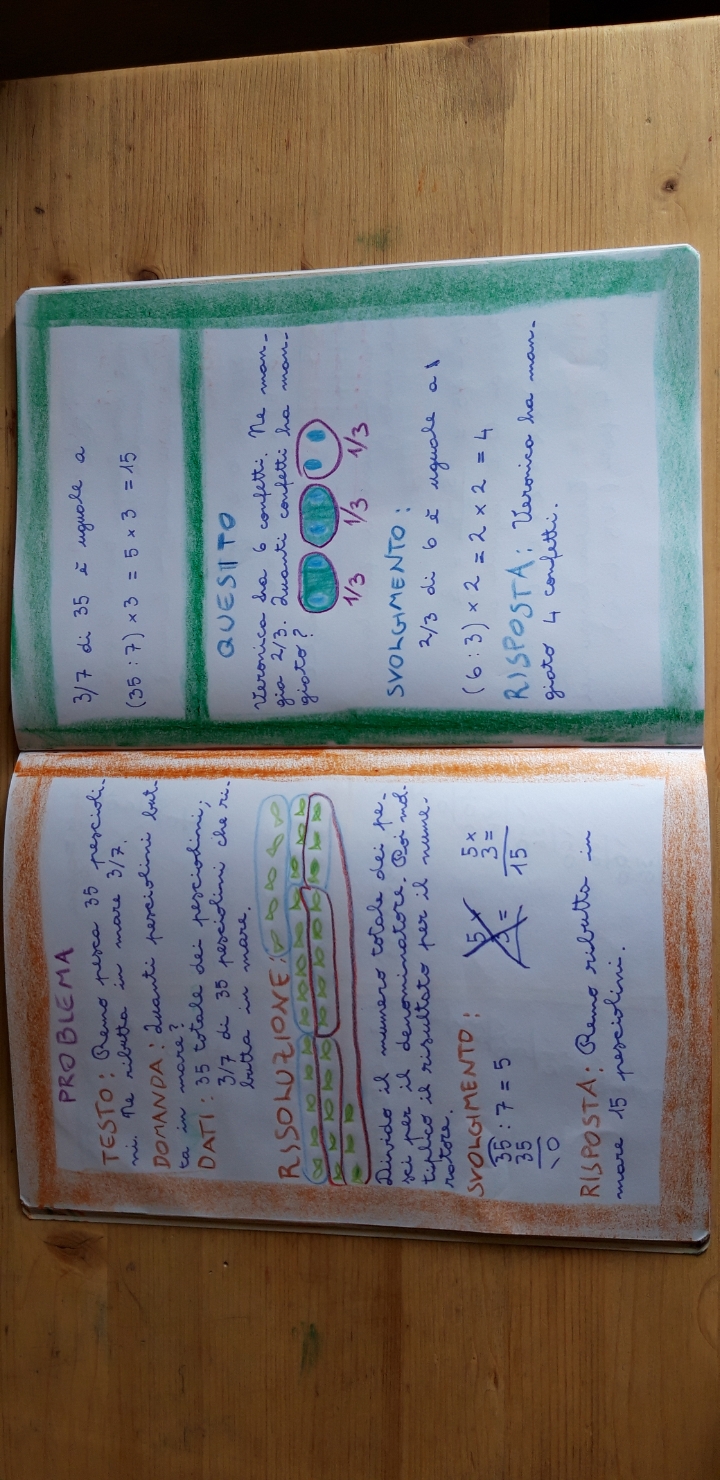 PROBLEMA
TESTO: Remo pesca 35 pesciolini. Ne ributta in mare 3/7.
DOMANDA: Quanti pesciolini butta in mare?
DATI: 35 totale dei pesciolini;
3/7 di 35 pesciolini che ributta in mare.
RISOLUZIONE:
Divido il numero totale dei pesci per il denominatore. Poi moltiplico il risultato per il numeratore.
SVOLGIMENTO:
35 : 7 = 5
35
0
5 x
3 =
15
RISPOSTA: Remo ributta in
mare 15 pesciolini.
3/7 di 35 è uguale a
(35 : 7) x 3 = 5 x 3 = 15
QUESITO
Veronica ha 6 confetti. Ne man-
gia 2/3. Quanti confetti ha man-
giato?
1/3 1/3 1/3
SVOLGIMENTO:
2/3 di 6 è uguale a
(6 : 3) x 2 = 2 x 2 = 4
RISPOSTA: Veronica ha man-
giato 4 confetti.